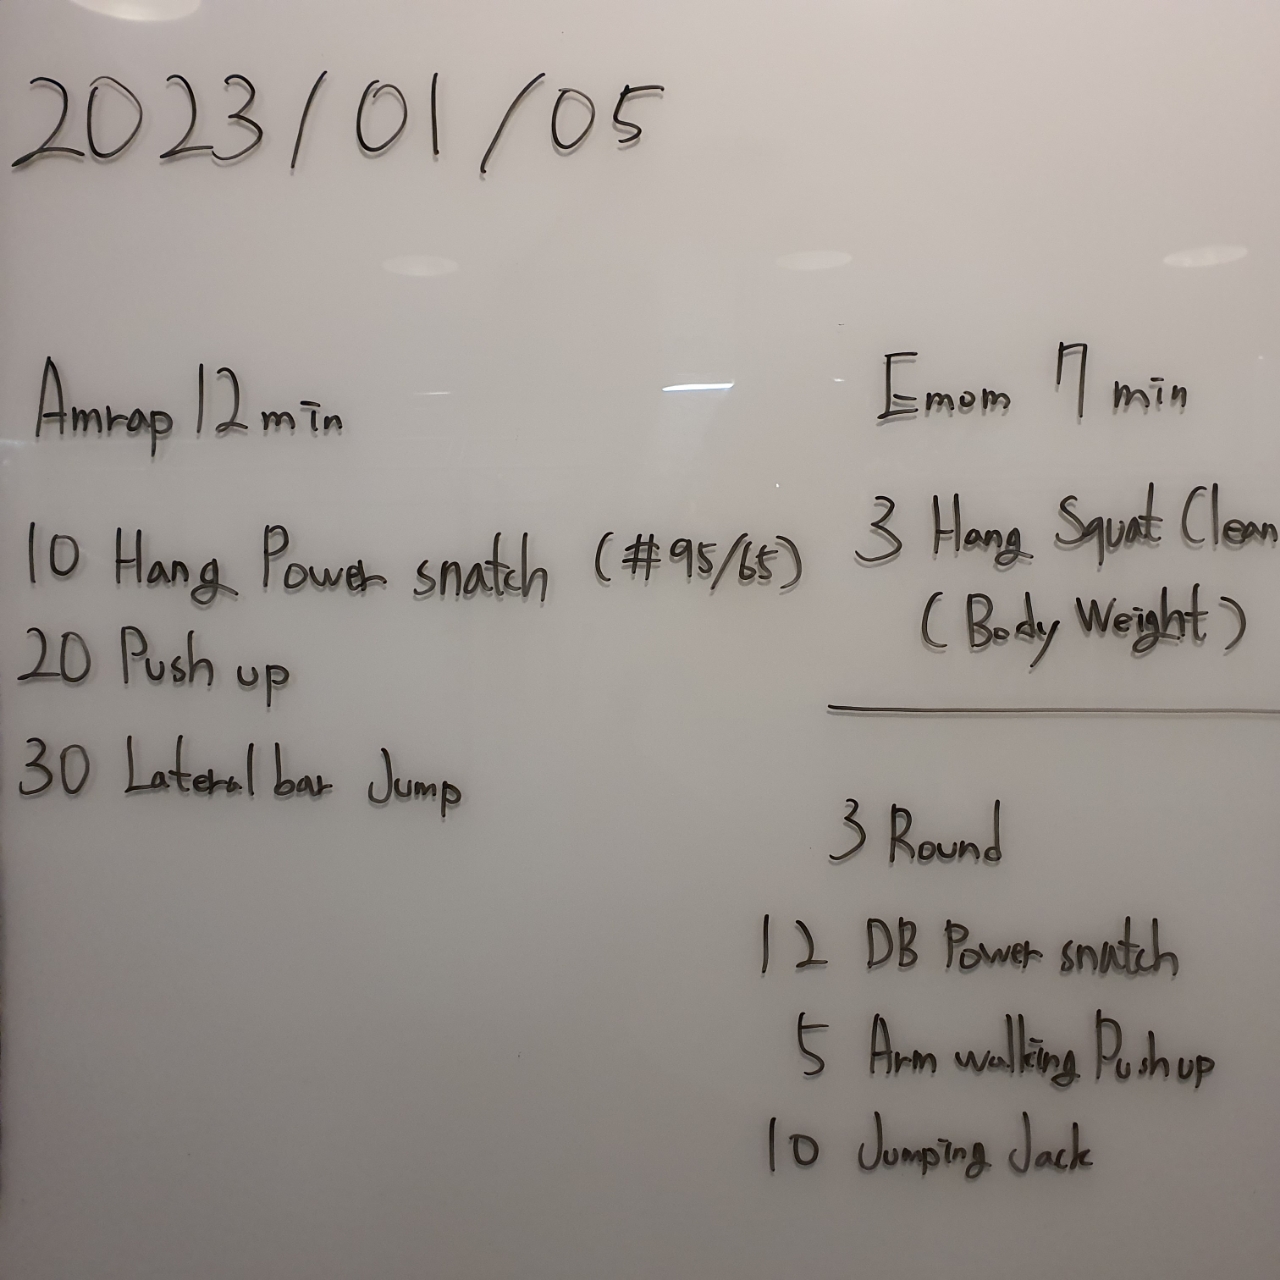 2023/01/05
Amrap 12 min
10 Hang Power snatch (#95/65)
20 Push up
30 Lateral bar Jump
Emom 7 min
3 Hang Squat Clean
(Body Weight)
3 Round
12 DB Power snatch
5 Arm walking Push up
10 Jumping Jack